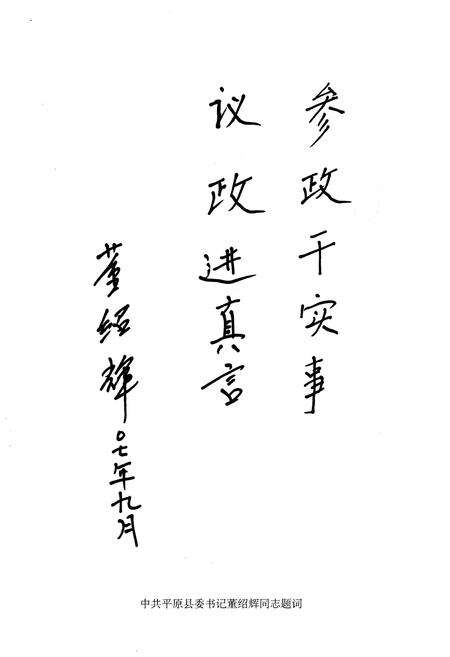 参政干实事
议政进真言
董绍辉
〇七年九月
中共平原县委书记董绍辉同志题词